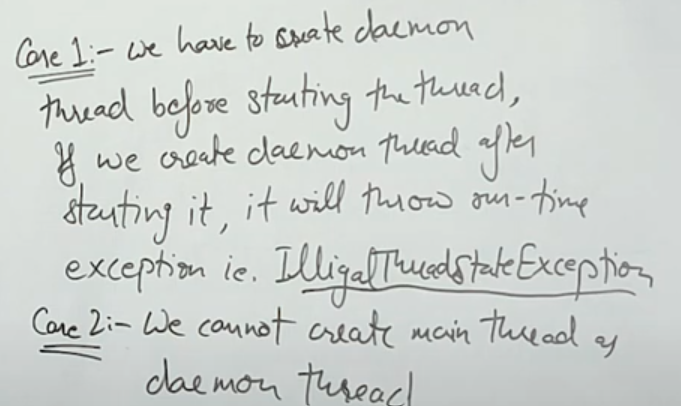 Case 1:- we have to create daemon
thread before starting the thread,
If we create daemon thread after
starting it, it will throw run-time
exception ie. IlligalThreadStateException
Case 2:- We cannot create main thread as
daemon thread